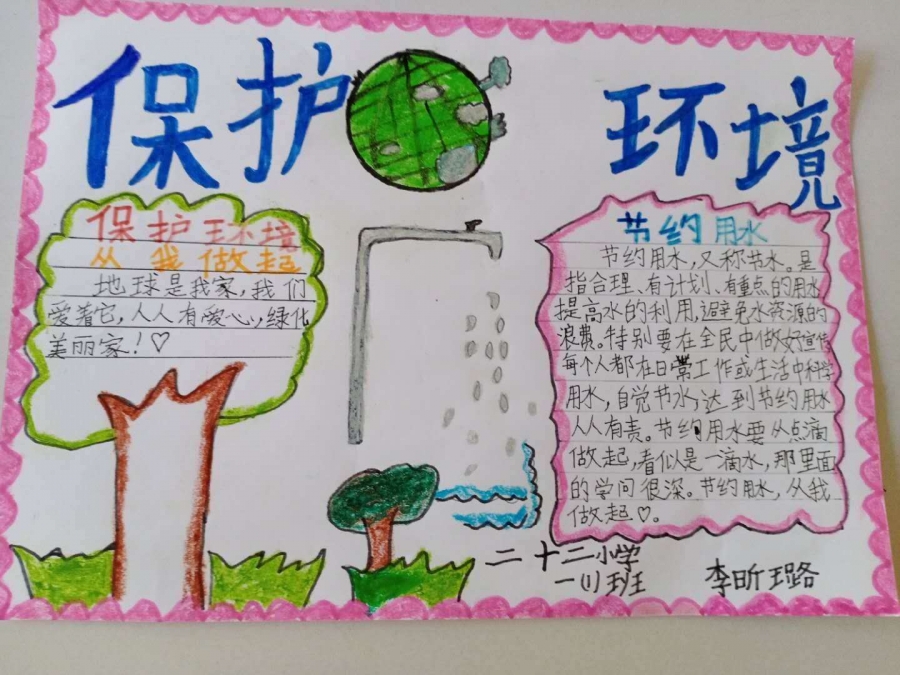 保护 环境
保护环境
从我做起
地球是我家,我们
爱着它,人人有爱心,绿化
美丽家!♡
节约用水
节约用水,又称节水。是
指合理、有计划、有重点的用水
提高水的利用,避免水资源的
浪费。特别要在全民中做好宣传
每个人都在日常工作或生活中科学
用水,自觉节水,达到节约用水
人人有责。节约用水要从点滴
做起,看似是一滴水,那里面
的学问很深。节约用水,从我
做起♡。
二十二小学
一(1)班
李昕璐